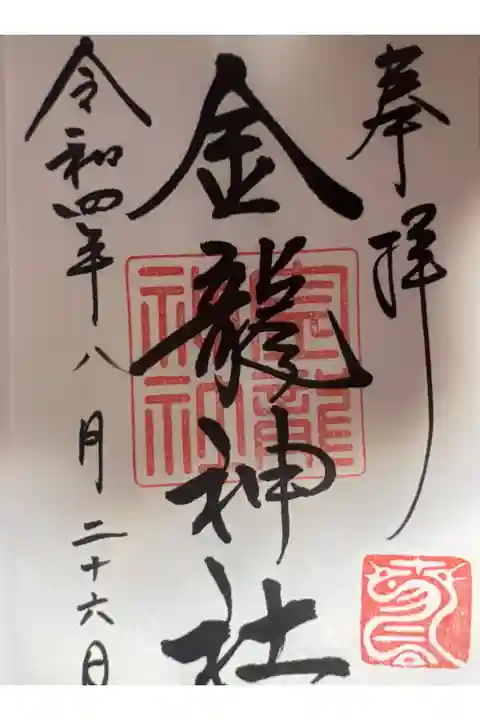 奉拝
金龍神社
令和四年八月二十六日